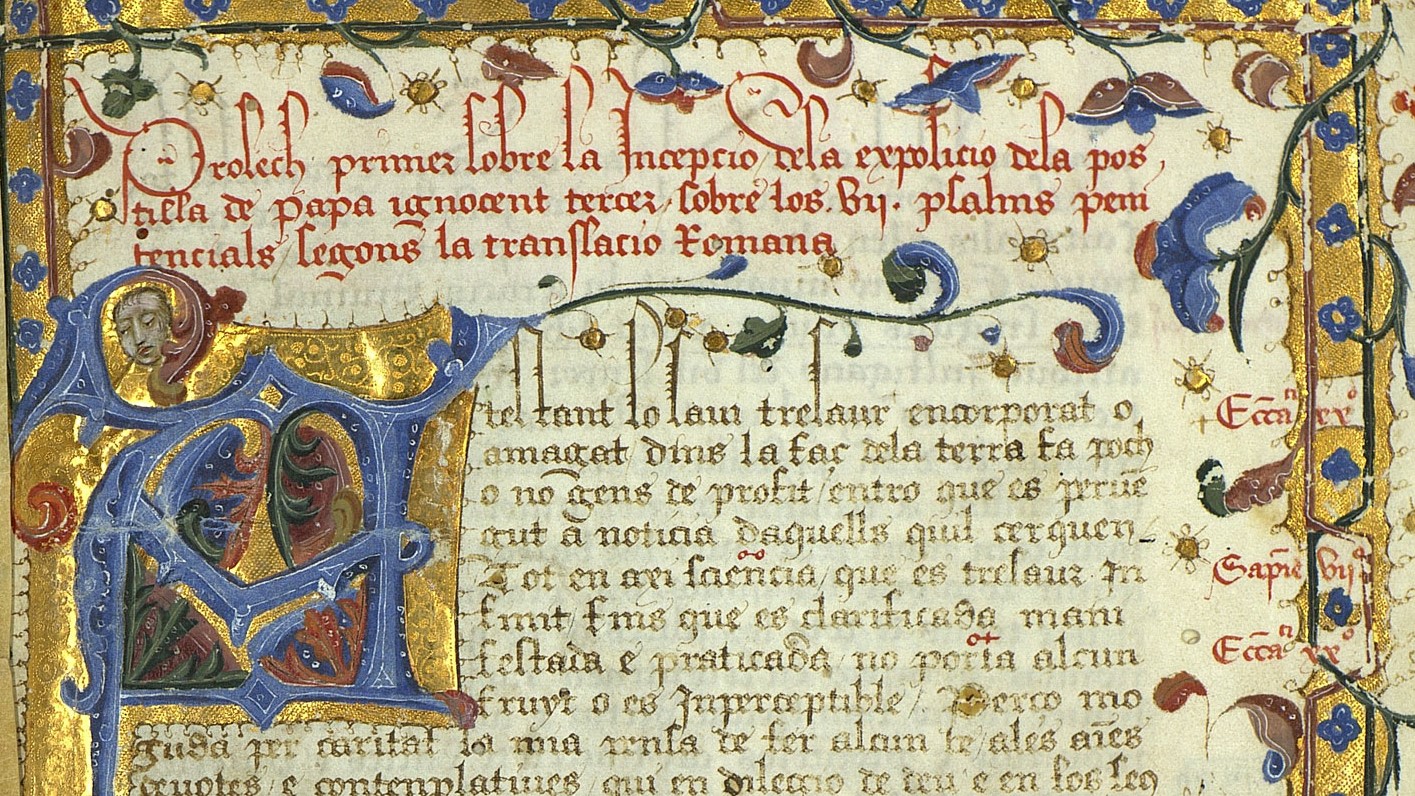 Prolech primer sobre la Incepcio dela exposicio dela pos
tilla de papa ignocent tercer / sobre los . vij . psalms peni
tencials / segons la translacio Romana
tel tant lo saui tresaur encorporat o
Ecca xx
amagat / dins la faç dela terra fa poch
o no gens de profit / entro que es peruē
gut a noticia daquells quil cerquen
Tot en axi sciencia / que es tresaur In
Sapie vij
finit fins que es clarificada mani
festada e praticada / no porta alcun
Ecca xx
fruyt o es Inperceptible / Perço mo
guda per caritat la mia pensa de fer alcun be / ales aīes
deuotes / e contemplatiues / qui en dileccio de deu e en los seus